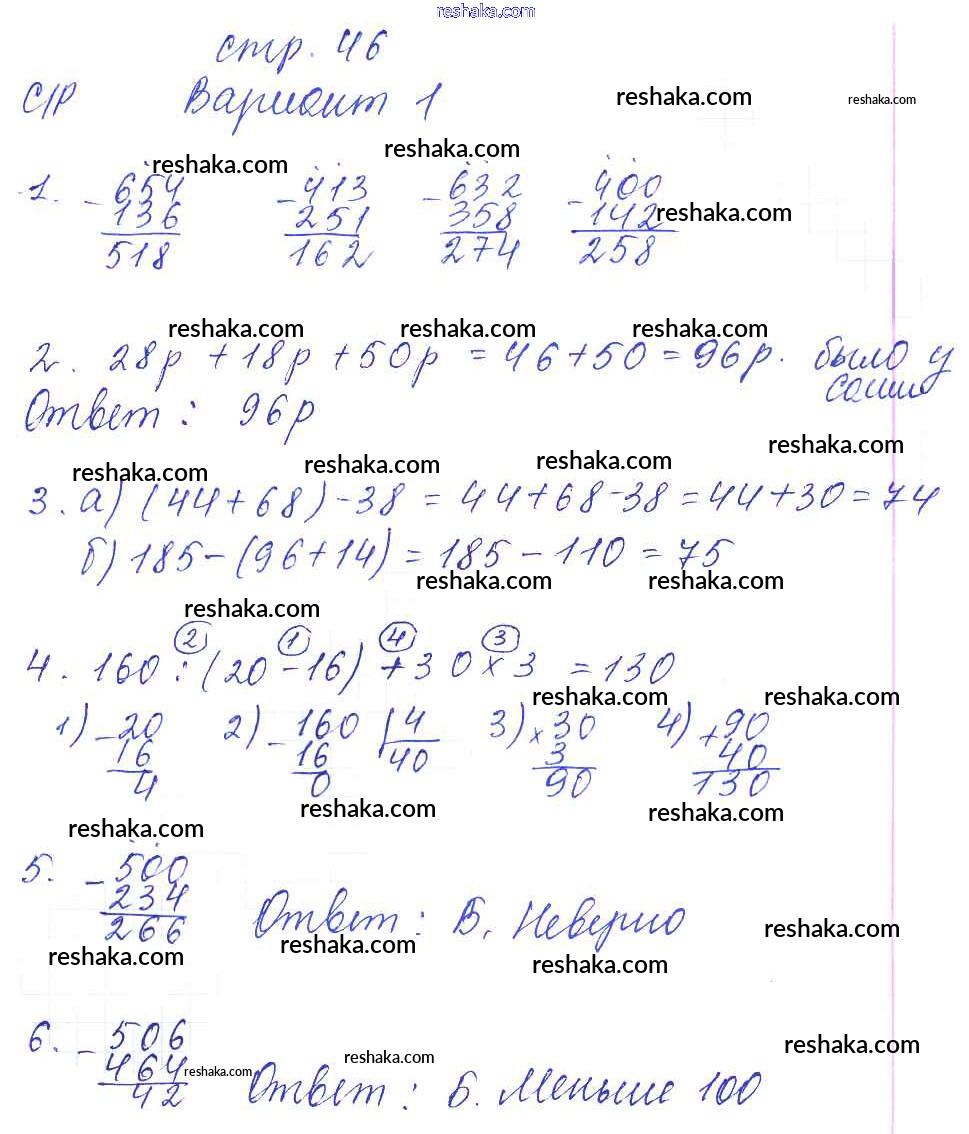 reshaka.com
стр. 46
С/Р Вариант 1 reshaka.com reshaka.com
reshaka.com reshaka.com
1. - 654 - 413 - 632 - 400
136 251 358 142 reshaka.com
518 162 274 258
reshaka.com reshaka.com reshaka.com
2. 28р + 18р + 50р = 46 + 50 = 96р. было у
Саши
Ответ: 96р
reshaka.com reshaka.com reshaka.com reshaka.com
3. а) (44+68)-38 = 44+68-38 = 44+30 = 74
б) 185-(96+14) = 185-110 = 75
reshaka.com reshaka.com reshaka.com
2 1 4 3
4. 160 : (20 - 16) + 30 × 3 = 130
reshaka.com reshaka.com
1) - 20 2) - 160 4 3) × 30 4) + 90
16 16 40 3 40
4 0 90 130
reshaka.com reshaka.com reshaka.com
5. - 500
234
266 Ответ: Б. Неверно reshaka.com
reshaka.com reshaka.com reshaka.com
6. - 506 reshaka.com
464 reshaka.com reshaka.com
42 Ответ: Б. Меньше 100